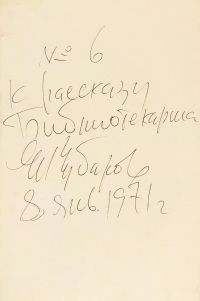 № 6
К рассказу
Библиотекарша
8 янв. 1971 г